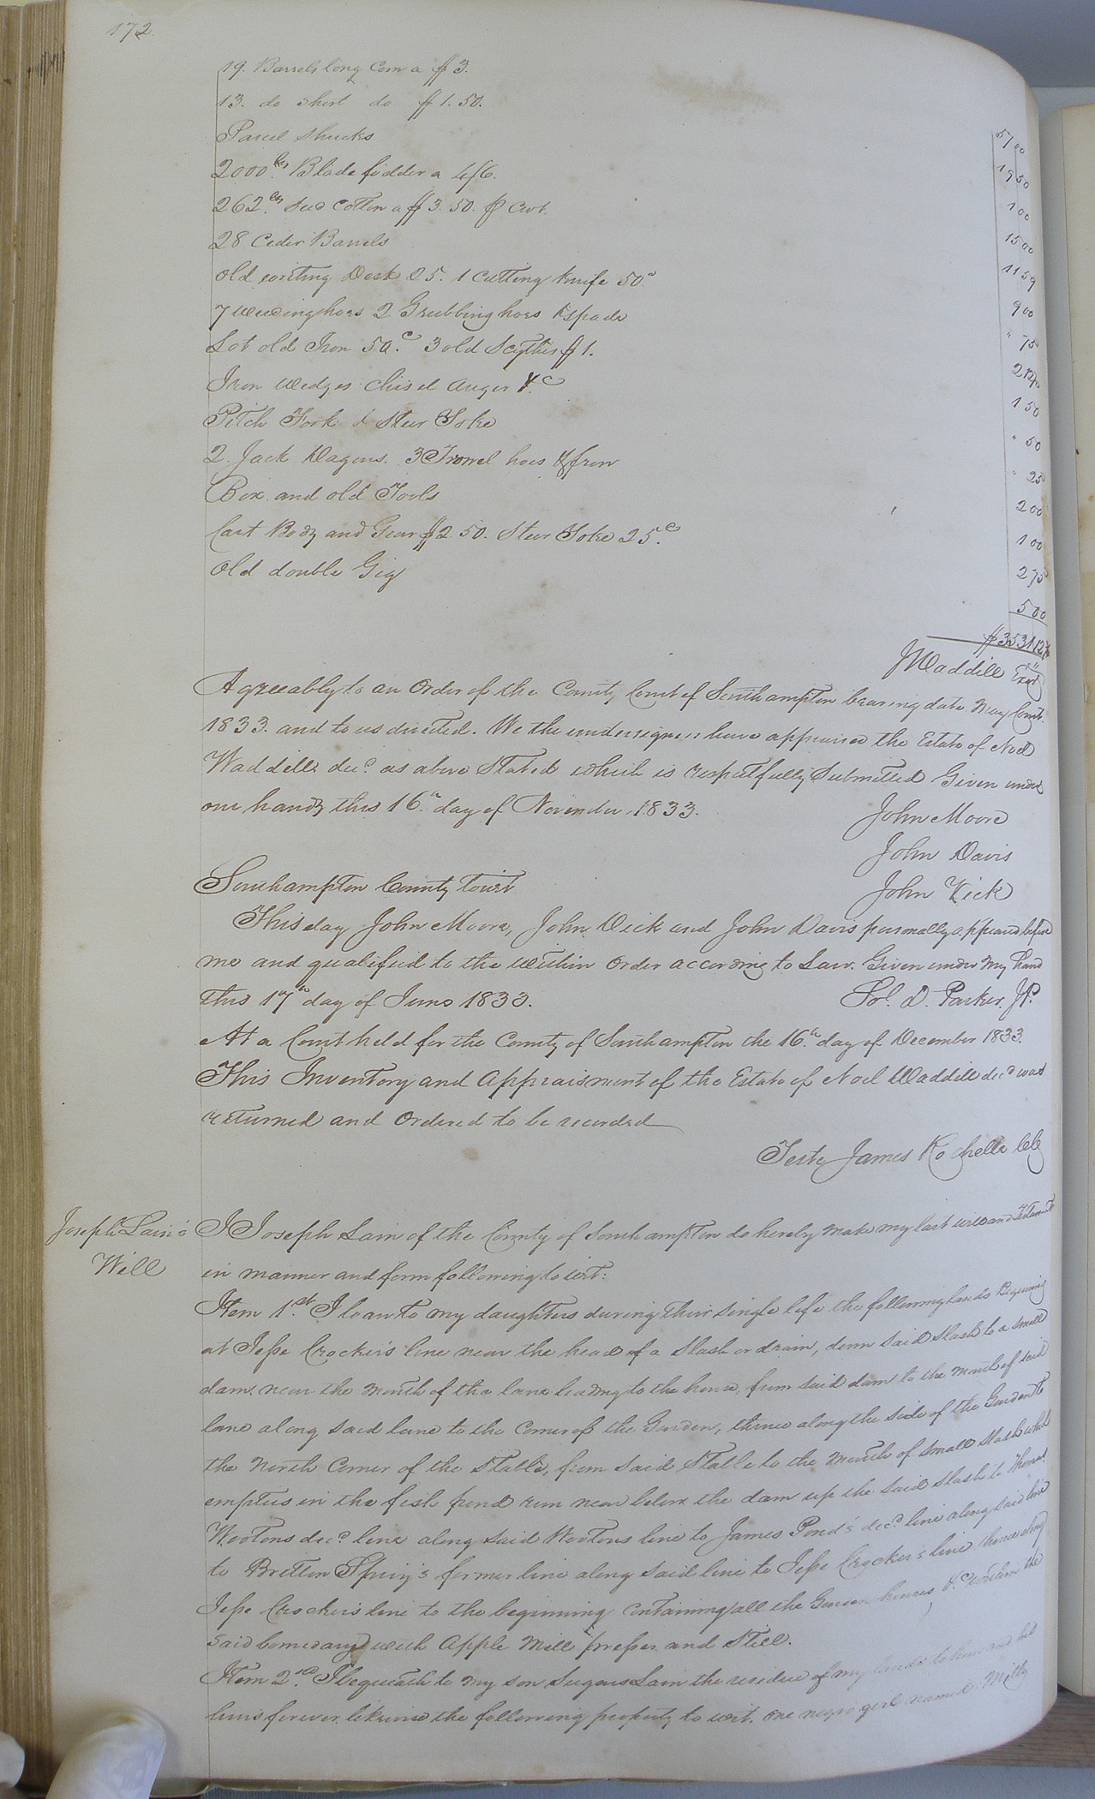 172
19. Barrels long Corn a $3. 57 00
13. do short do $1.50. 19 50
Parcel Shucks 1 00
2000 lbs Blade fodder a 4/6. 15 00
262 lbs Seed Cotton a $3.50. p Cwt. 11 59
28 Ceder Barrels 9 00
Old writing Desk 25. 1 Cutting Knife 50c " 75
7 weeding hoes 2 Grubbing hoes & Spade 2 12½
Lot old Iron 50.c 3 old Scythes $1. 1 50
Iron Wedges chisel Auger &c " 50
Pitch Fork & Steer Yoke " 25
2. Jack Wagons. 3 Trowel hoes & 2 00
Box and old Tools 1 00
Cart Body and Gear $2.50. Steer Yoke 25.c 2 75
Old double Gig 5 00
$3531.12½
J Waddill Exr
Agreeably to an Order of the County Court of Southampton bearing date May Court
1833. and to us directed. We the undersigners have appraised the Estate of Noel
Waddill decd. as above Stated which is respectfully Submitted Given under
our hands this 16th day of November 1833.
John Moore
John Davis
John Vick
Southampton County Towit
This day John Moore, John Vick and John Davis personally appeared before
me and qualified to the within Order according to Law. Given under my hand
this 17th day of June 1833. Sol. D. Parker, JP.
At a Court held for the County of Southampton the 16th day of December 1833.
This Inventory and Appraisment of the Estate of Noel Waddill decd was
returned and Ordered to be recorded
Teste James Rochelle Clk
Joseph Lain's
Will
I Joseph Lain of the County of Southampton do hereby make my last will and Testament
in manner and form following to wit:
Item 1st. I loan to my daughters during their single life the following lands Begining
at Jesse Crocker's line near the head of a Slash or drain, down said Slash to a small
dam, near the mouth of the lane leading to the house, from said dam to the mouth of said
lane along said lane to the Corner of the Garden, thence along the side of the Garden to
the North Corner of the Stable, from said Stable to the mouth of small slash which
empties in the fish pond run near below the dam up the said Slash to Thomas
Wootons decd. line along said Wootons line to James Pond's decd line along said line
to Britton Spivy's former line along said line to Jesse Crocker's line thence along
Jesse Crockers line to the beginning Containing all the houses &c within the
said boundary with Apple Mill presses and Still.
Item 2nd. I bequeath to my son Lain the residue of my lands to him and his
heirs forever likewise the following property to wit. One negro girl named Milly